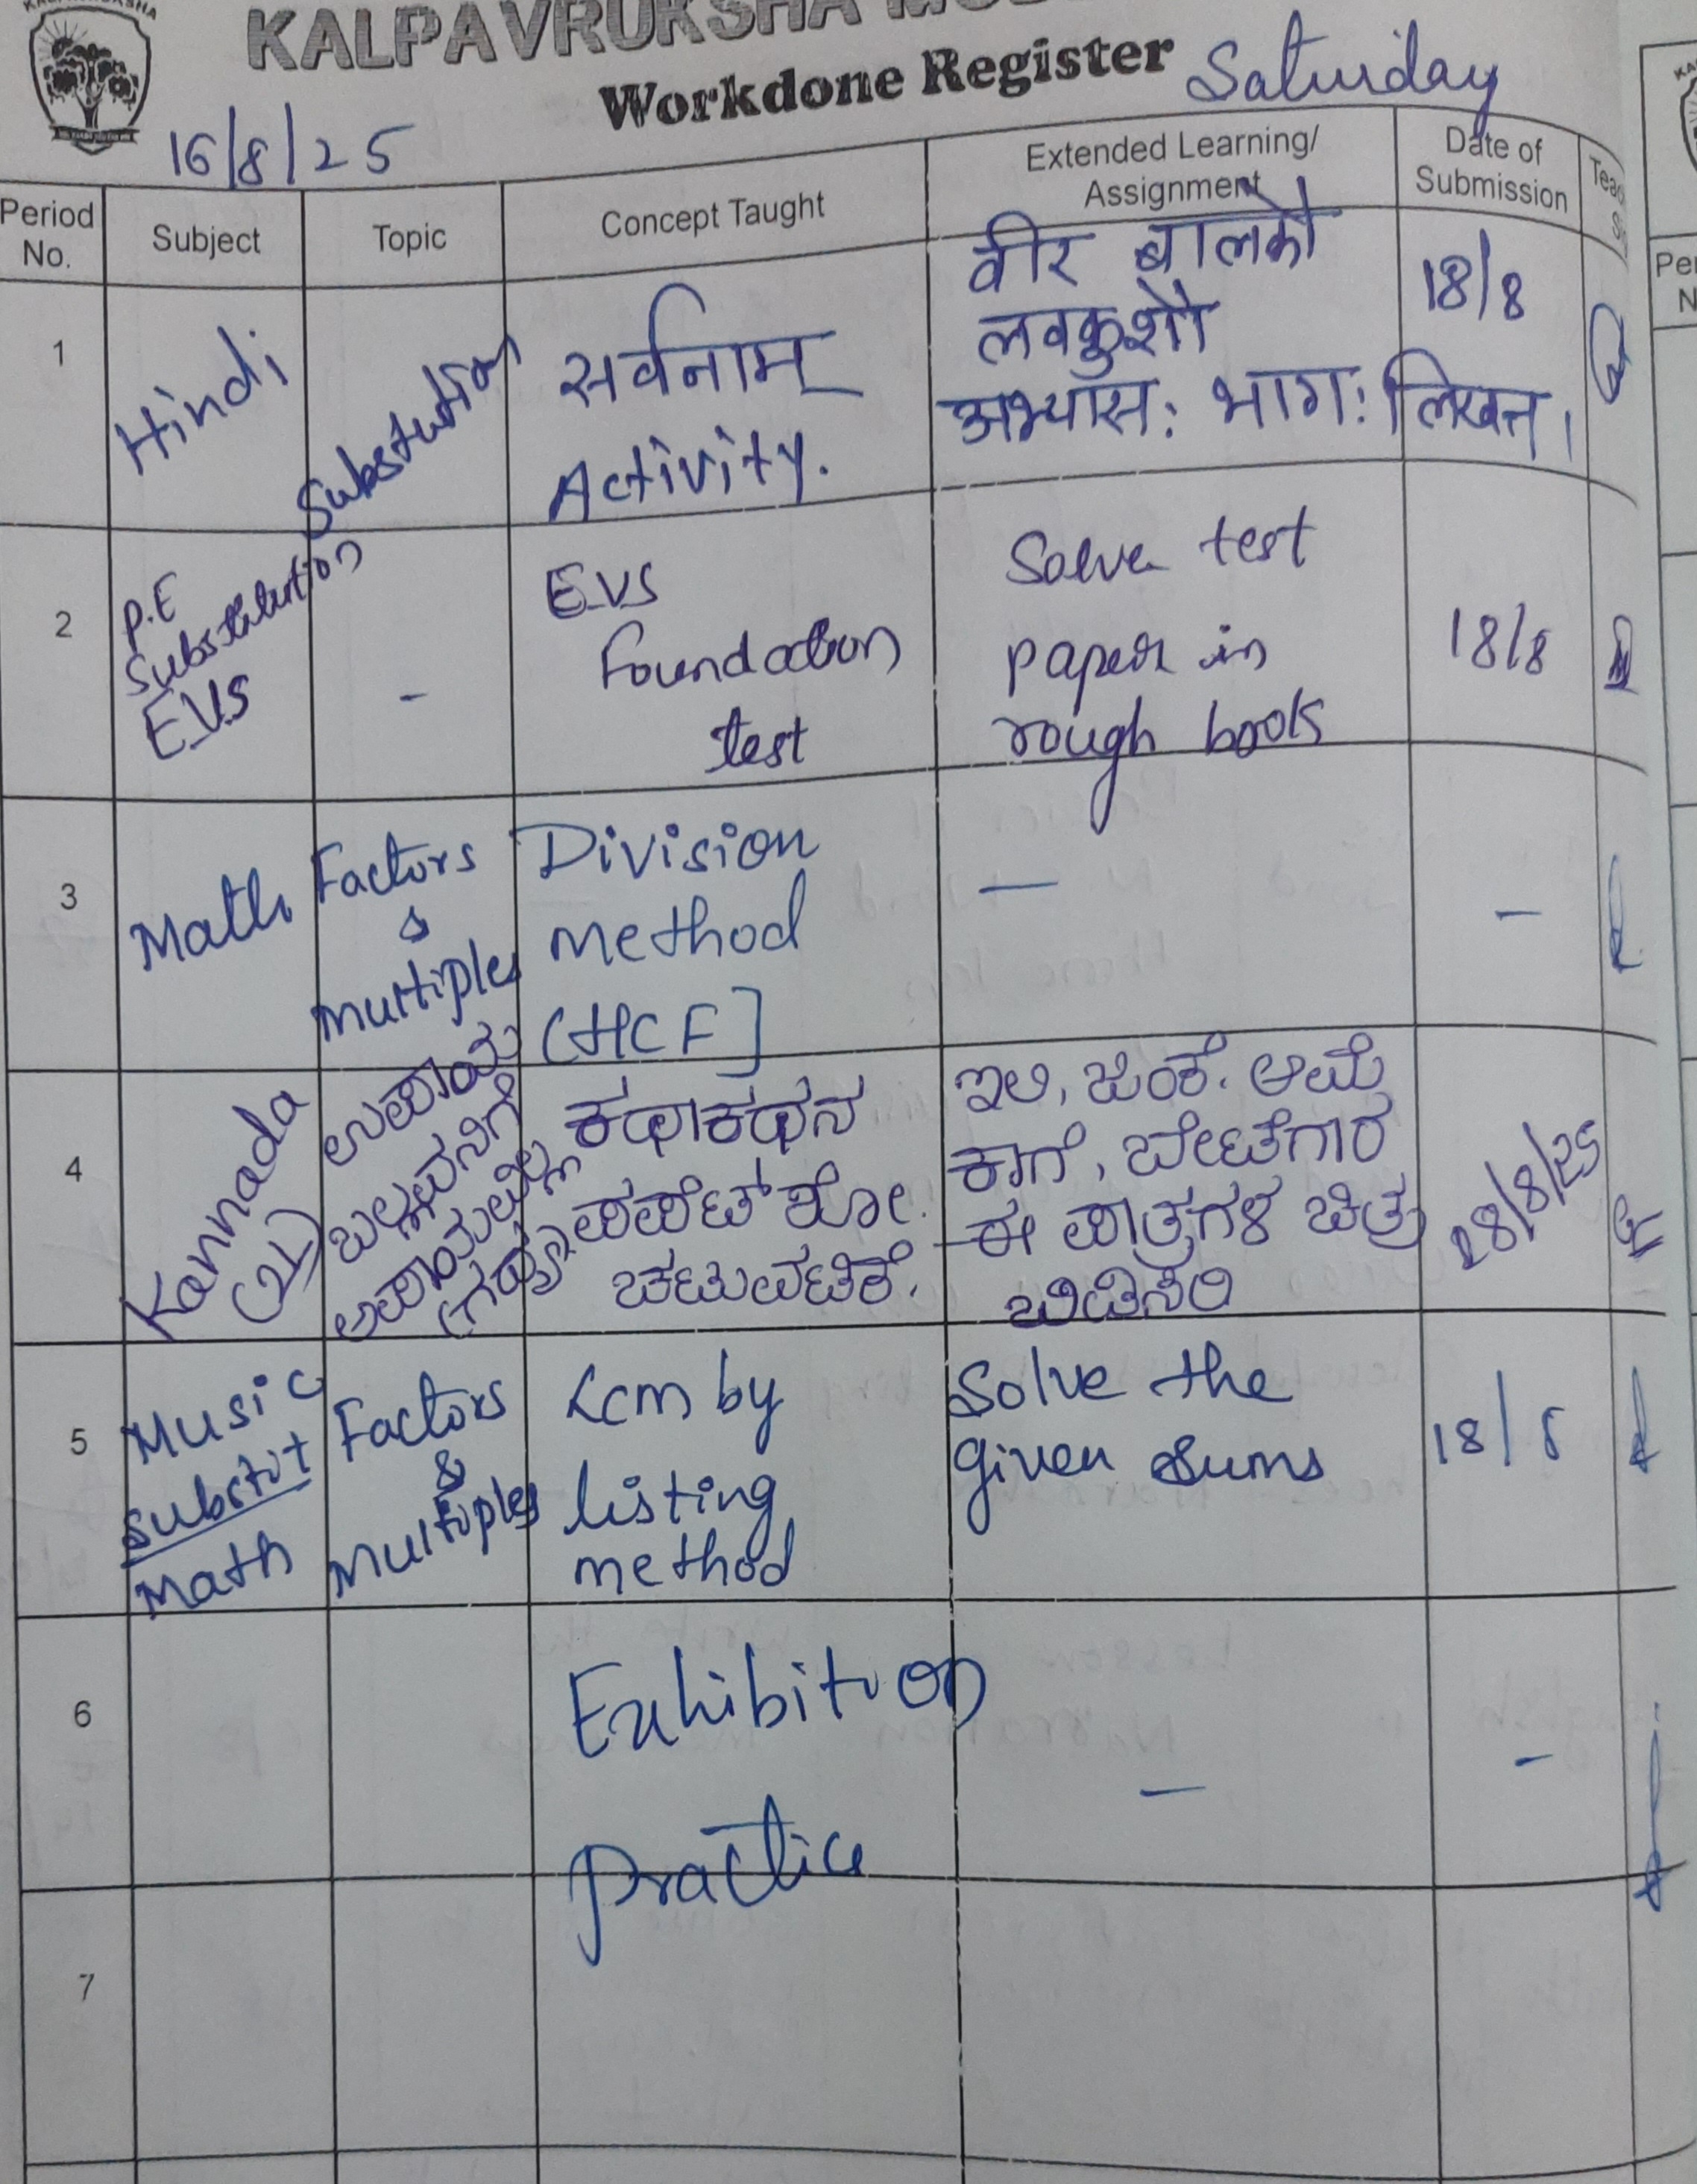 KALPAVRUKSHA
KALPAVRUKSHA
Workdone Register
Saturday
16/8/25
Period No.
Subject
Topic
Concept Taught
Extended Learning/
Assignment
Date of
Submission
1
Hindi
Substution
सर्वनाम्
Activity.
वीर बालकौ
लवकुशौ
अभ्यासः भागः लिखत।
18/8
2
P.E
Substitution
EVS
-
EVS
Foundation
test
Solve test
paper in
rough book
18/8
3
Math
Factors
&
multiples
Division
method
(HCF]
—
—
4
Kannada
(2L)
ಉಪಾಯ
ಬಲ್ಲವನಿಗೆ
ಅಪಾಯವಿಲ್ಲ
(ಗದ್ಯ)
ಕಥಾಕಥನ
ಪಪೆಟ್ ಶೋ.
ಚಟುವಟಿಕೆ.
ಇಲಿ, ಜಿಂಕೆ. ಆಮೆ
ಕಾಗೆ, ಬೇಟೆಗಾರ
ಈ ಪಾತ್ರಗಳ ಚಿತ್ರ
ಬಿಡಿಸಿರಿ
28/8/25
5
Music
substit
Math
Factors
&
Multiples
Lcm by
listing
method
Solve the
given sums
18/8
6
Exhibition
practice
—
-
7
Per
N